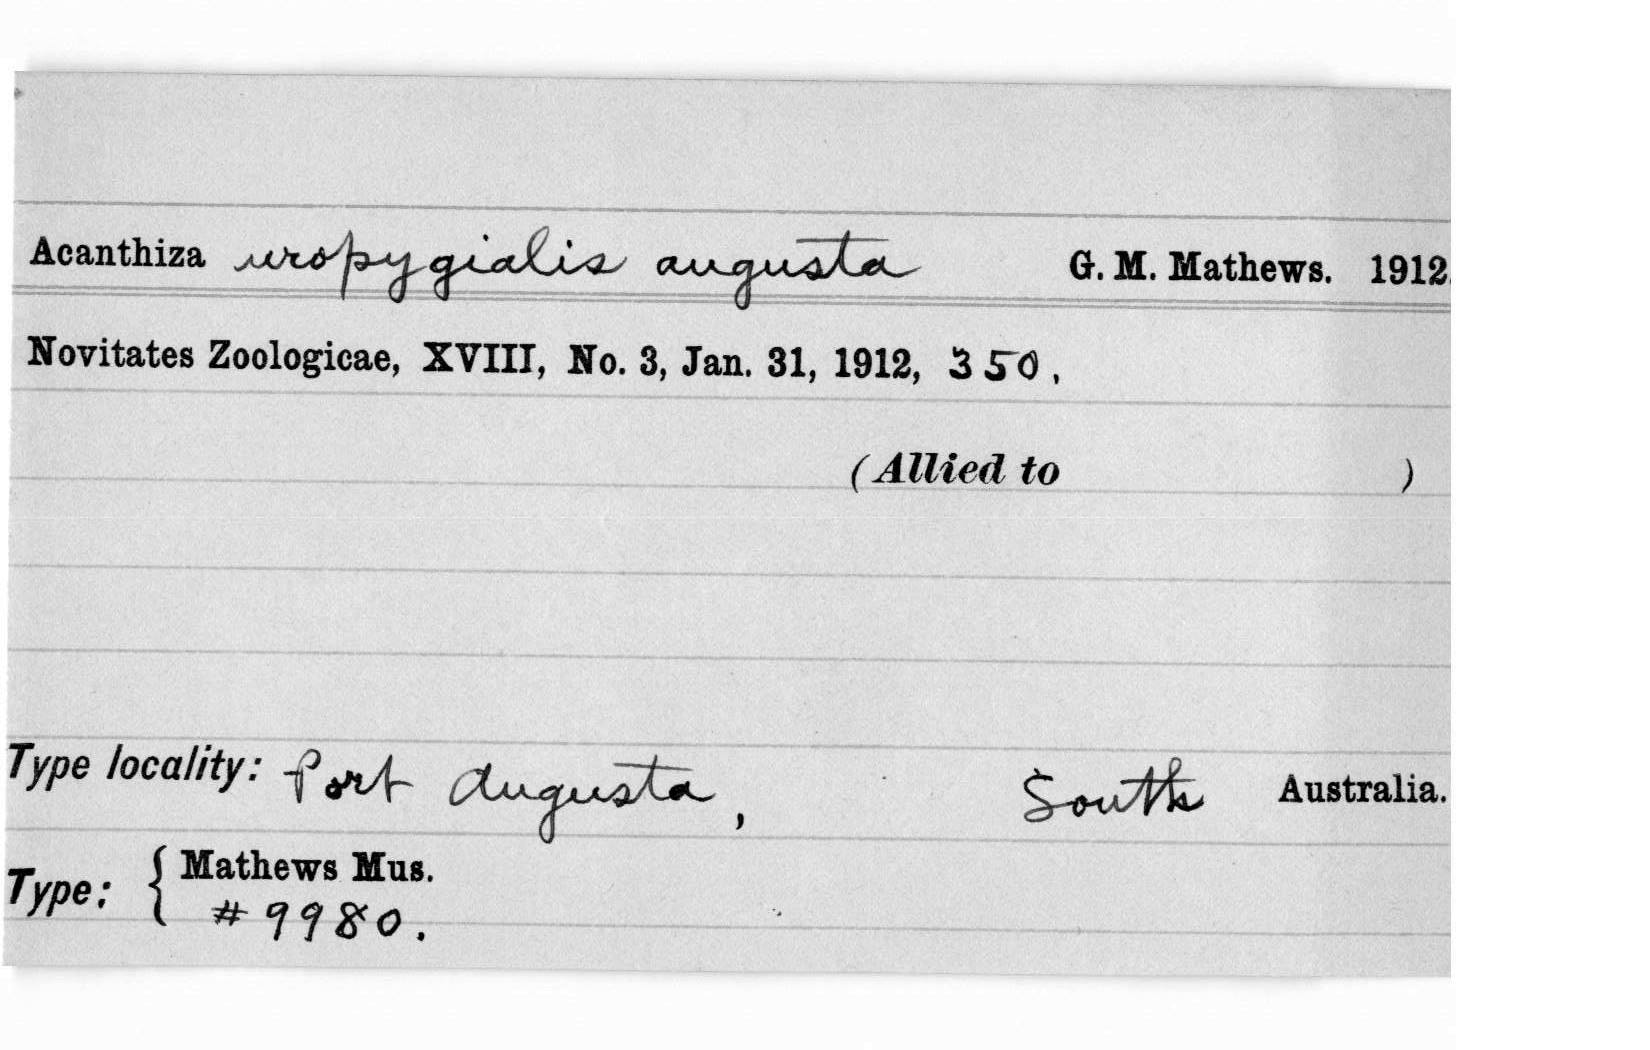 Acanthiza uropygialis augusta G. M. Mathews. 1912.
Novitates Zoologicae, XVIII, No. 3, Jan. 31, 1912, 350.
(Allied to )
Type locality: Port Augusta, South Australia.
Type: { Mathews Mus.
# 9980.